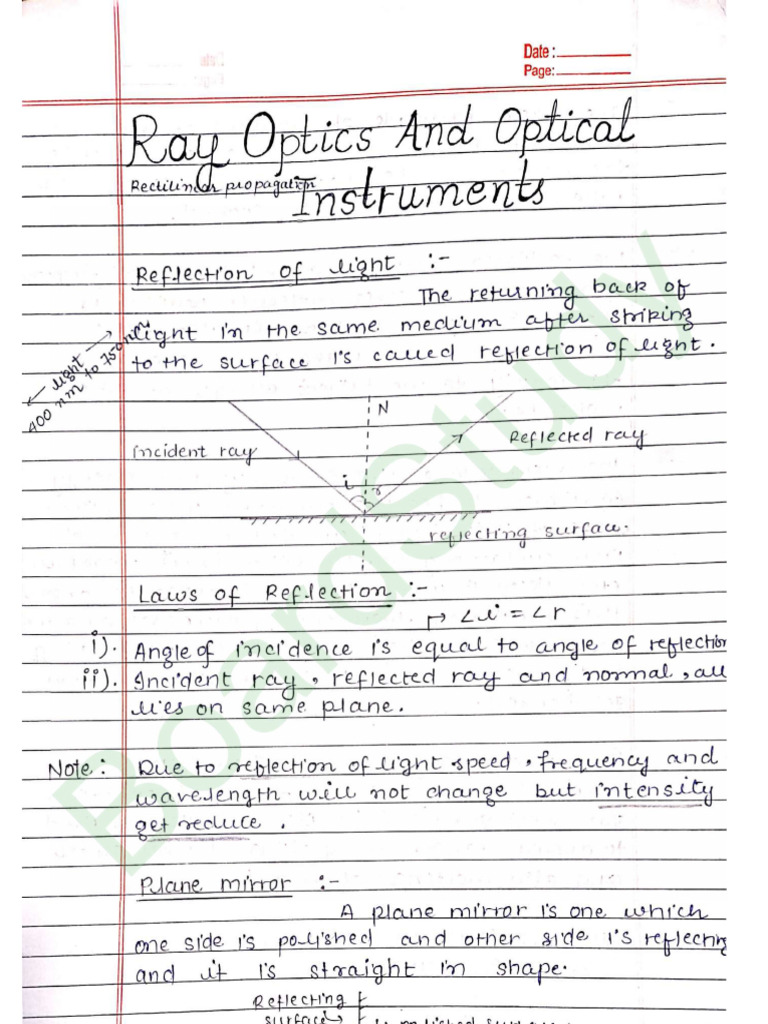 Date :
Page:
Ray Optics And Optical
Rectilinear propagation
Instruments
Reflection of light :-
The returning back of
light in the same medium after striking
to the surface is called reflection of light.
← light →
400 nm to 750 nm
N
incident ray
Reflected ray
i
r
reflecting surface.
Laws of Reflection :-
↱ ∠i = ∠r
i). Angle of incidence is equal to angle of reflection
ii). Incident ray, reflected ray and normal, all
lies on same plane.
Note: Due to reflection of light speed, frequency and
wavelength will not change but intensity
get reduce.
Plane mirror :-
A plane mirror is one which
one side is polished and other side is reflecting
and it is straight in shape.
Reflecting
surface→
BoardStudy